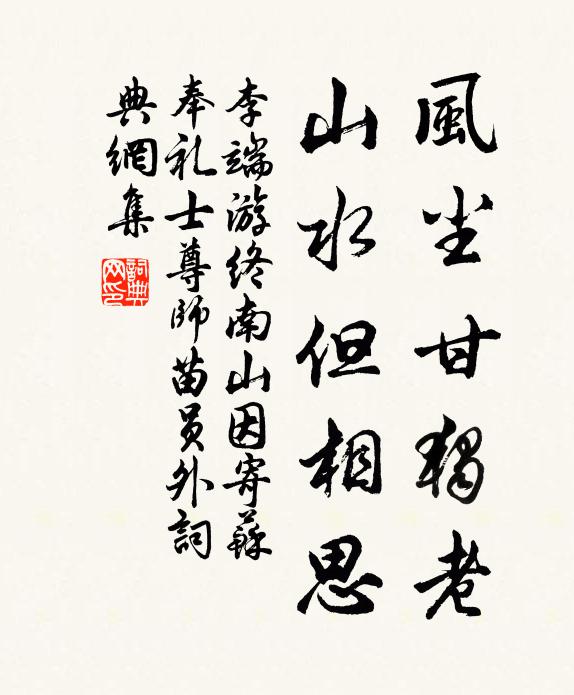 風尘甘獨老
山水但相思
李端游終南山因寄蘇
奉礼士尊師苗員外詞
典網集
詞典网印